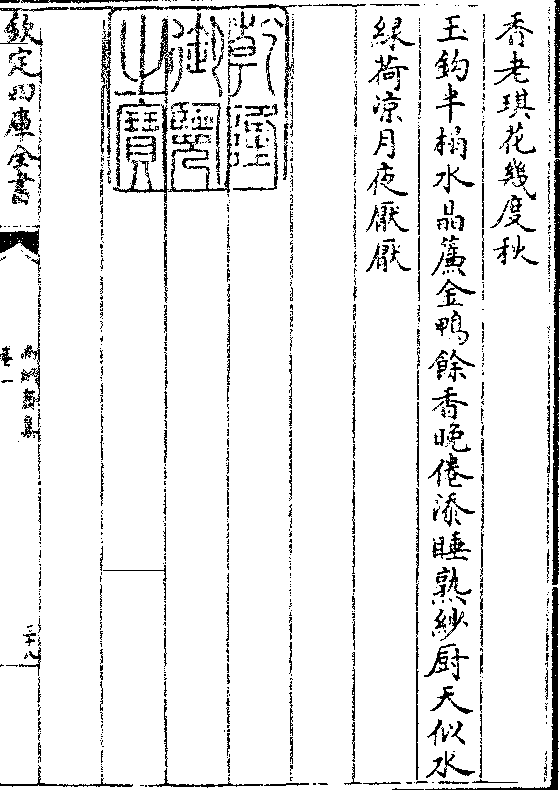 香老琪花幾度秋
玉鈎半搊水晶薕金鴨餘香晚倦添睡熟紗厨天似水
緑荷凉月夜厭厭
乾隆
御覽
之寶
欽定四庫全書
卷一
二十八